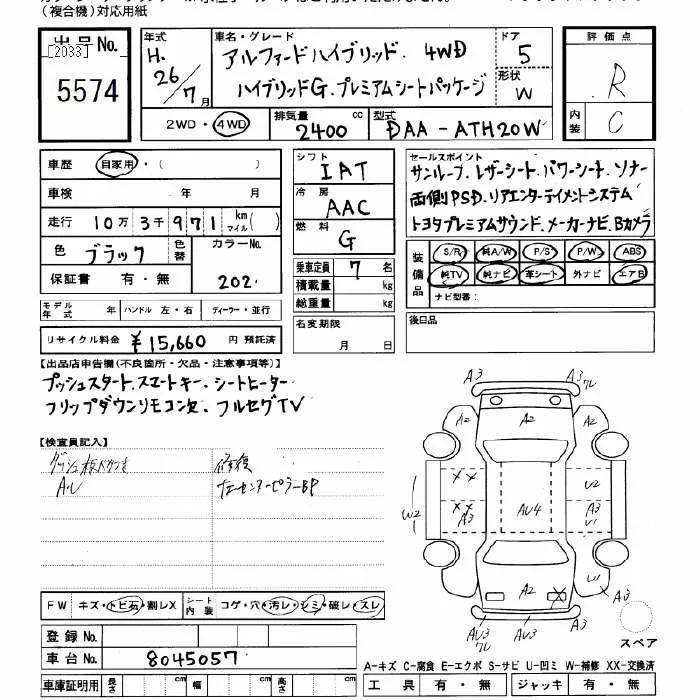 (複合機)対応用紙
出品No.
[2033]
5574
年式
H.
26/7月
車名・グレード
アルファードハイブリッド. 4WD
ハイブリッドG.プレミアムシートパッケージ
ドア
5
形状
W
評価点
R
内装
C
2WD・4WD
排気量
2400 cc
型式
DAA-ATH20W
車歴 自家用・( )
車検 年 月
走行 10万3千971 km マイル( )
色 ブラック 色替 カラーNo. 202
保証書 有・無
モデル年式 年 ハンドル 左・右 ディーラー・並行
リサイクル料金 ¥15,660 円 預託済
シフト IAT
冷房 AAC
燃料 G
乗車定員 7 名
積載量 kg
総重量 kg
名変期限
月 日
セールスポイント
サンルーフ.レザーシート.パワーシート.ソナー
両側PSD.リアエンターテイメントシステム
トヨタプレミアムサウンド.メーカーナビ.Bカメラ
装備品 S/R 純A/W P/S P/W ABS
純TV 純ナビ 革シート 外ナビ エアB
ナビ型番:
後日品
【出品店申告欄(不良箇所・欠品・注意事項等)】
プッシュスタート.スマートキー.シートヒーター
フリップダウンリモコン欠.フルセグTV
【検査員記入】
修復
A3
A3
A2
A2
A2
U2
W2
A3
AU4
A3
U1
A2
U1
A3
AU3
AU3
スペア
FW キズ・トビ石・割レX シート内装 コゲ・穴・汚レ・シミ・破レ・スレ
登録No.
車台No. 8045057
車庫証明用 長さ cm 幅 cm 高さ cm
A-キズ C-腐食 E-エクボ S-サビ U-凹ミ W-補修 XX-交換済
工具 有・無 ジャッキ 有・無